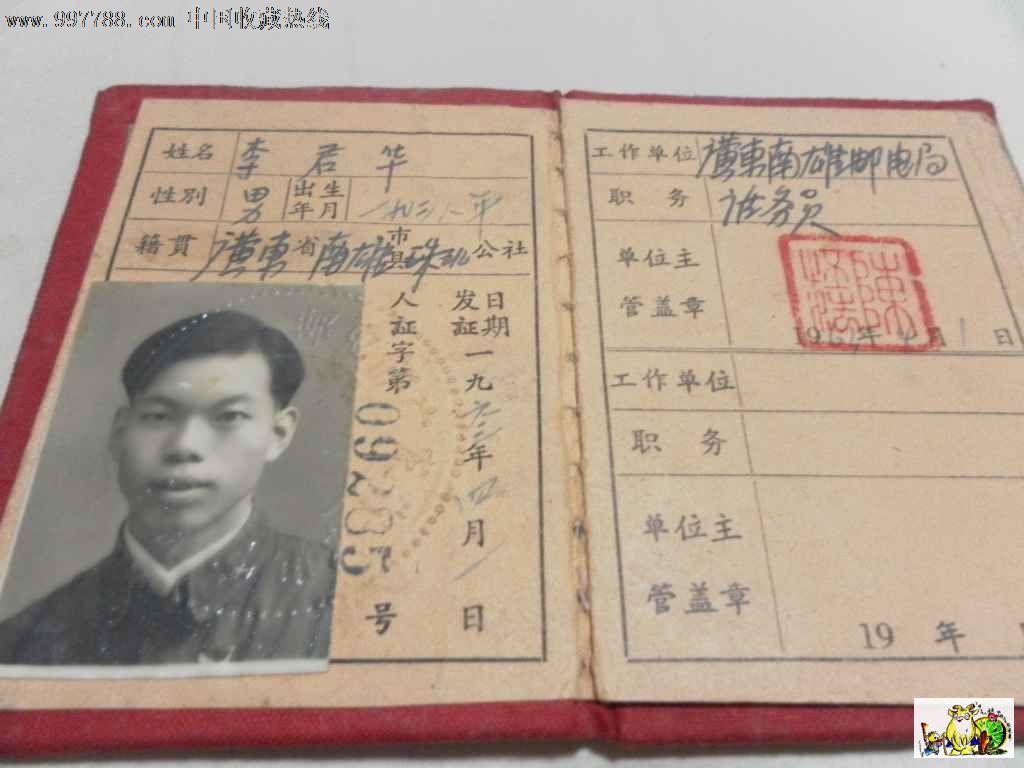 www.997788.com 中国收藏热线
姓名 李君华
性别 男 出生年月 一九三八年
籍贯 廣東省南雄市县珠玑公社
发证日期一九六三年四月1日
人証字第092835号
工作单位 廣東南雄邮电局
职务 话务员
单位主管盖章
19 年 月1日
工作单位
职务
单位主管盖章
19 年